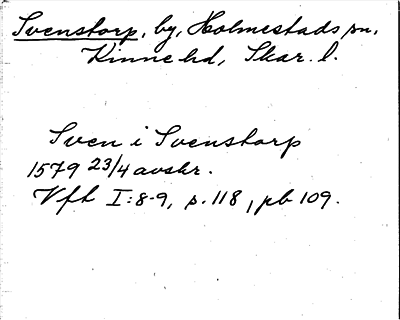 Svenstorp, by, Holmestads sn,
Kinne hd, Skar. l.
Sven i Svenstorp
1579 23/4 avskr.
Vft I:8-9, s. 118, pb 109.